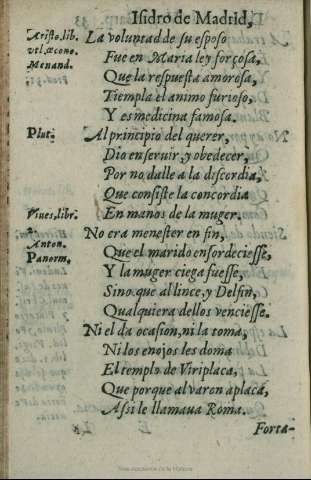 Isidro de Madrid,
Aristo, lib.
vel, œcono.
Menand.
La voluntad de su esposo
Fue en Maria ley forçosa,
Que la respuesta amorosa,
Tiempla el animo furioso,
Y es medicina famosa.
Plut.
Al principio del querer,
Dio en seruir, y obedecer,
Por no dalle a la discordia,
Que consiste la concordia
Viues, libr.
En manos de la muger.
Anton.
Panorm.
No era menester en fin,
Que el marido ensordeciesse,
Y la muger ciega fuesse,
Sino que al lince, y Delfin,
Qualquiera dellos venciesse.
Ni el da ocasion, ni la toma,
Ni los enojos les doma
El templo de Viriplaca,
Que porque al varon aplaca,
Assi le llamaua Roma.
Forta-